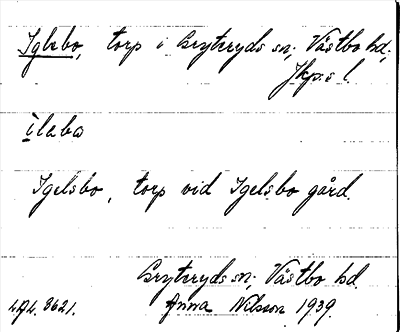 Iglabo, torp i Gryteryds sn; Västbo hd;
Jkp:s l.
ilabo
Igelsbo, torp vid Igelsbo gård.
Gryteryds sn; Västbo hd.
L.A.L. 8621. Anna Nilsson 1939.